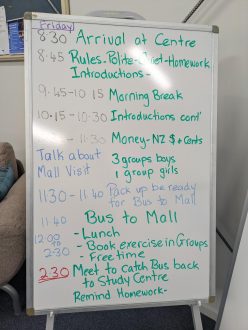 Friday
8:30 Arrival at Centre
8:45 Rules-Polite-Quiet-Homework
Introductions -
9:45-10:15 Morning Break
10:15-10:30 Introductions cont'
- 11:30 Money-NZ $ + Cents
Talk about 3 groups boys
Mall Visit 1 group girls
11:30-11:40 Pack up be ready
for Bus to Mall
11.40 Bus to Mall
- Lunch
12:00 to 2:30 - Book exercise in Groups
- Free time
2.30 Meet to catch Bus back
to Study Centre
Remind Homework-